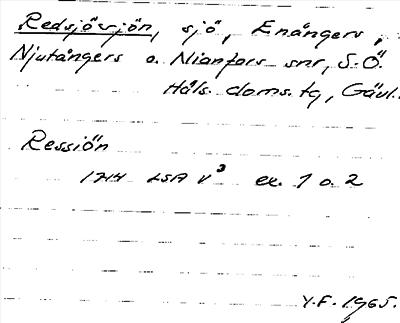 Redsjövsjön, sjö, Enångers,
Njutångers o. Nianfors snr, S.Ö.
Häls. doms. tg, Gävl.
Ressiön
1714 LSA V³ ex. 1 o. 2
Y.F. 1965.